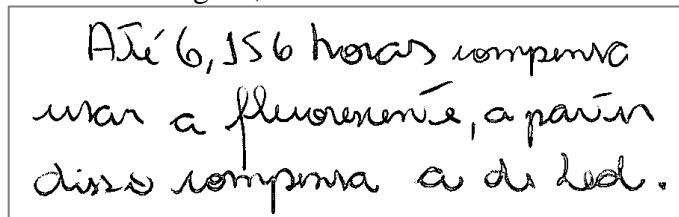 Até 6,156 horas compensa
usar a fluorescente, a partir
disso compensa a de Led.